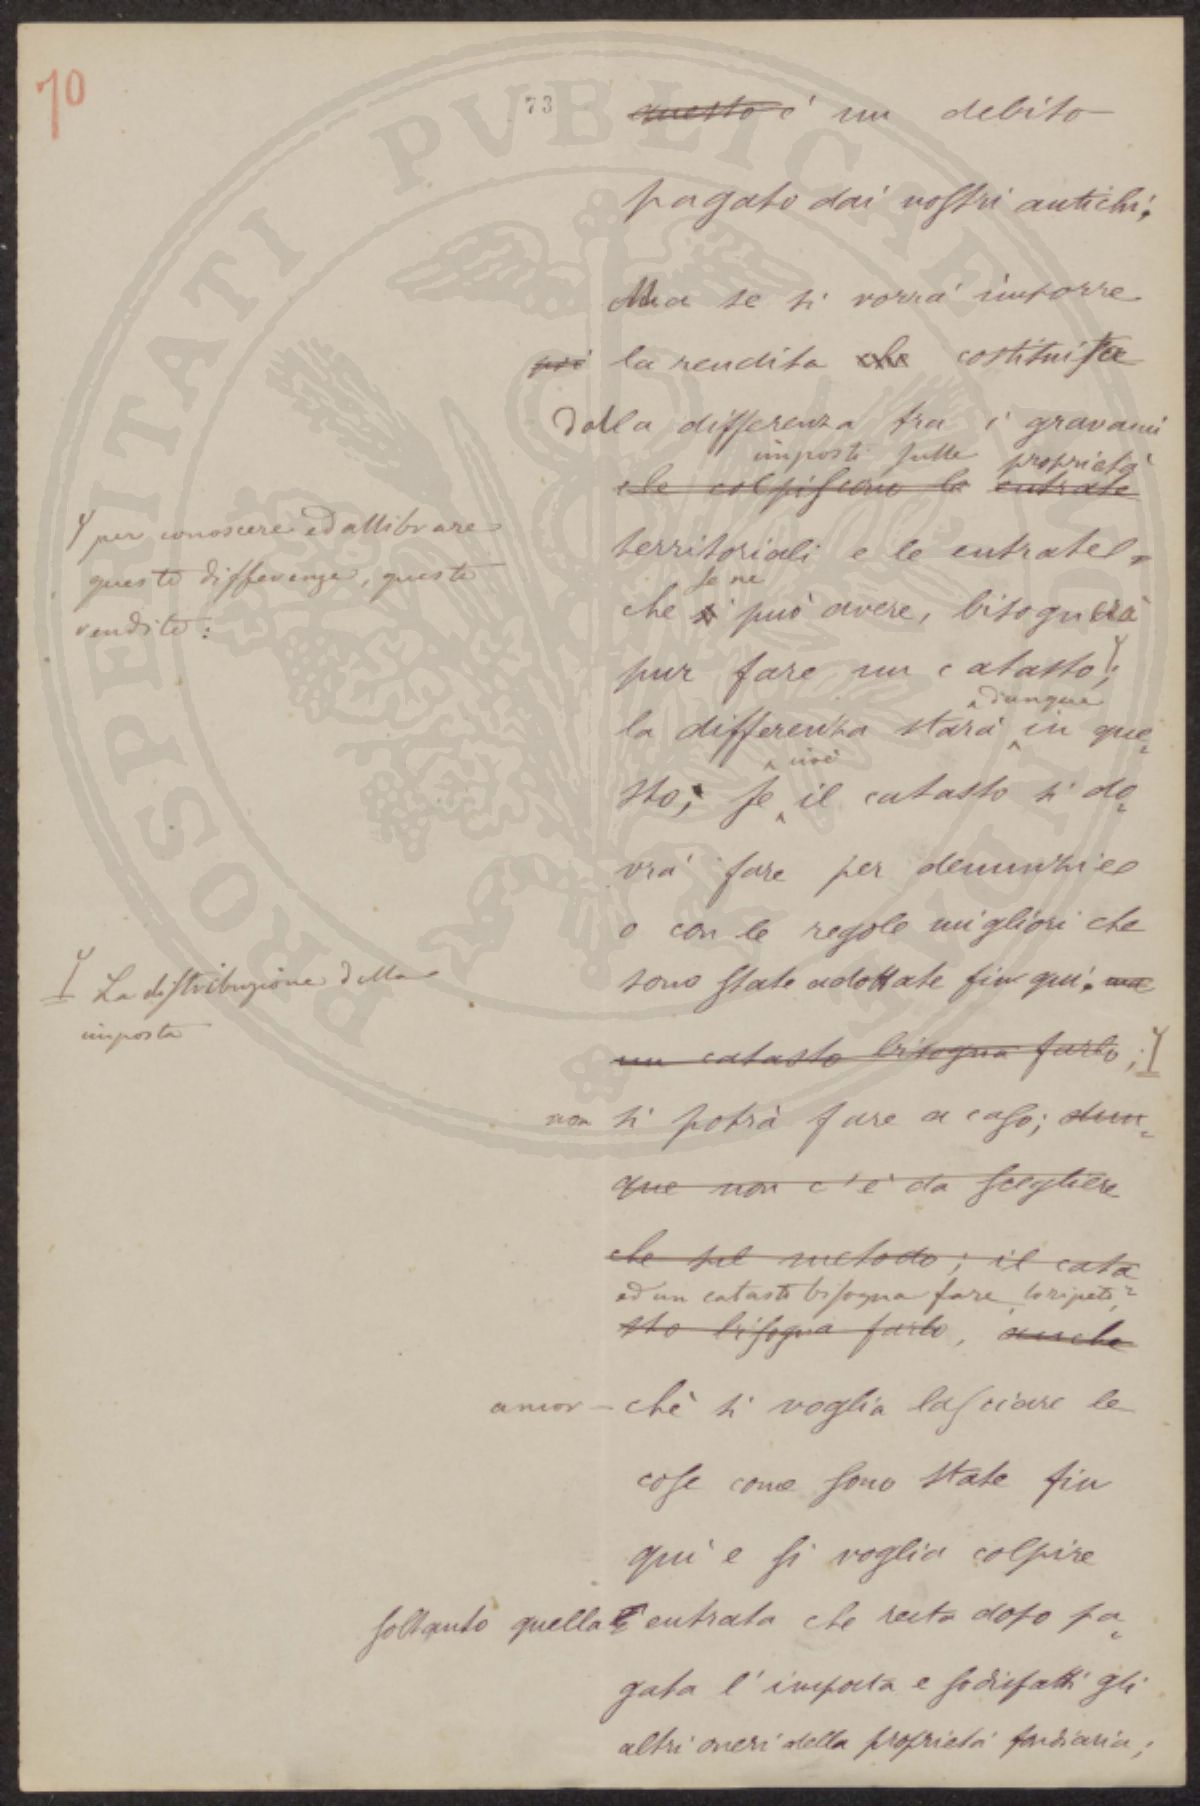 70
73
questo è un debito
pagato dai nostri antichi;
Ma se si vorrà imporre
più la rendita che costituita
dalla differenza fra i gravami
imposti sulle proprietà
che colpiscono le entrate
territoriali e le entrate
se ne
che si può avere, bisognerà
pur fare un catasto;
dunque
la differenza starà in que-
cioè
sto; se il catasto si do-
vrà fare per denunzie
o con le regole migliori che
sono state adottate fin qui. ma
un catasto bisogna farlo;
non si potrà fare a caso; dun-
que non c'è da scegliere
che sul metodo; il cata
ed un catasto bisogna fare, lo ripeto,
sto bisogna farlo, anche
ancor-chè si voglia lasciare le
cose come sono state fin
qui e si voglia colpire
soltanto quella entrata che resta dopo pa-
gata l'imposta e sodisfatti gli
altri oneri della proprietà fondiaria;
per conoscere ed allibrare
queste differenze, queste
rendite:
La distribuzione della
imposta
PROSPERITATI PVBLICAE